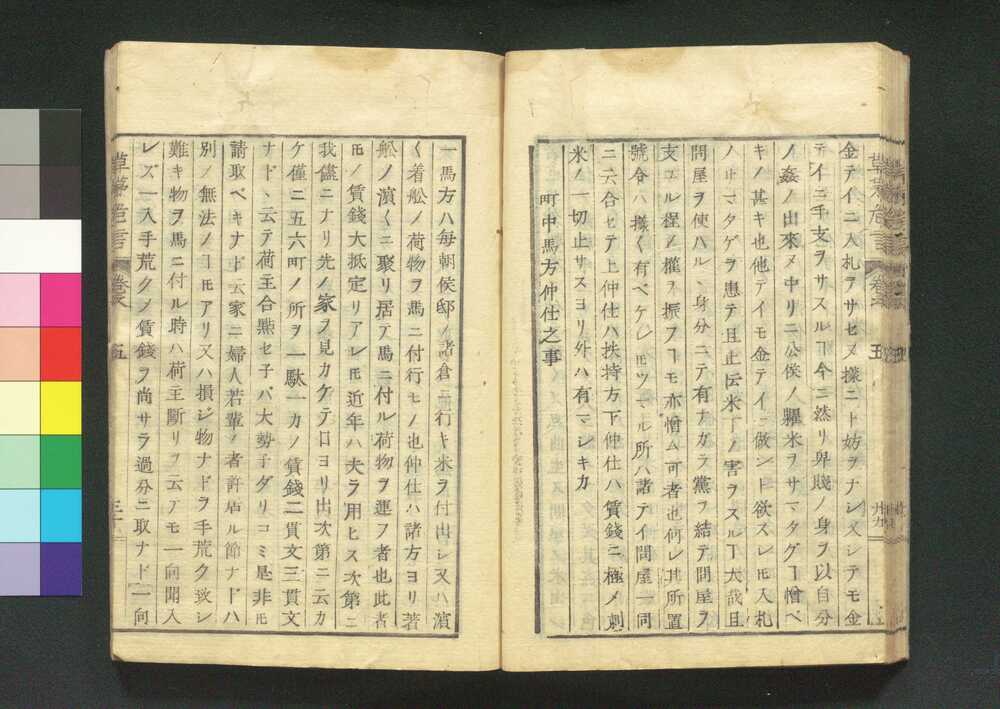 金テイニ入札ヲサセメ様ニト妨ヲナシ又シテモ金
テイニ手支ヲサスルヿ今ニ然リ卑賤ノ身ヲ以自分
ノ姦ノ出来メ中リニ公侯ノ糶米ヲサマタグヿ憎ベ
キノ甚キ也他テイモ金テイニ做ント欲スレ𪜈入札
ノサマタゲヲ患テ且止伝米丁ノ害ヲスルヿ大哉且
問屋ヲ使ハル丶身分ニテ有ナガラ黨ヲ結テ問屋ヲ
支ユル程ノ權ヲ振フヿモ亦憎ム可者也何レ其所置
號令ハ様〱有ベケレ𪜈ツマル所ハ諸テイ問屋一同
ニ云合セテ上仲仕ハ扶持方下仲仕ハ賃錢ニ極メ刎
米ノ一切止サスヨリ外ハ有マシキカ
町中馬方仲仕之事
一馬方ハ毎朝侯邸ノ諸倉ニ行キ米ヲ付出シ又ハ濱
〱着舩ノ荷物ヲ馬ニ付行モノ也仲仕ハ諸方ヨリ著
舩ノ濱〱ニ聚リ居テ馬ニ付ル荷物ヲ運フ者也此者
𪜈ノ賃錢大抵定リアレ𪜈近年ハ夫ヲ用ヒス次第ニ
我儘ニナリ先ノ家ヲ見カケテ口ヨリ出次第ニ云カ
ケ僅ニ五六町ノ所ヲ一駄一カノ賃錢二貫文三貫文
ナド丶云テ荷主合㸃セ子バ大勢子ダリコミ是非𪜈
請取ベキナド云家ニ婦人若輩ノ者許居ル節ナドハ
別ノ無法ノヿ𪜈アリ又ハ損ジ物ナドヲ手荒ク致シ
難キ物ヲ馬ニ付ル時ハ荷主斷リヲ云テモ一向聞入
レズ一入手荒クノ賃錢ヲ尚サラ過分ニ取ナド一向
草茅危言 卷之五 三十